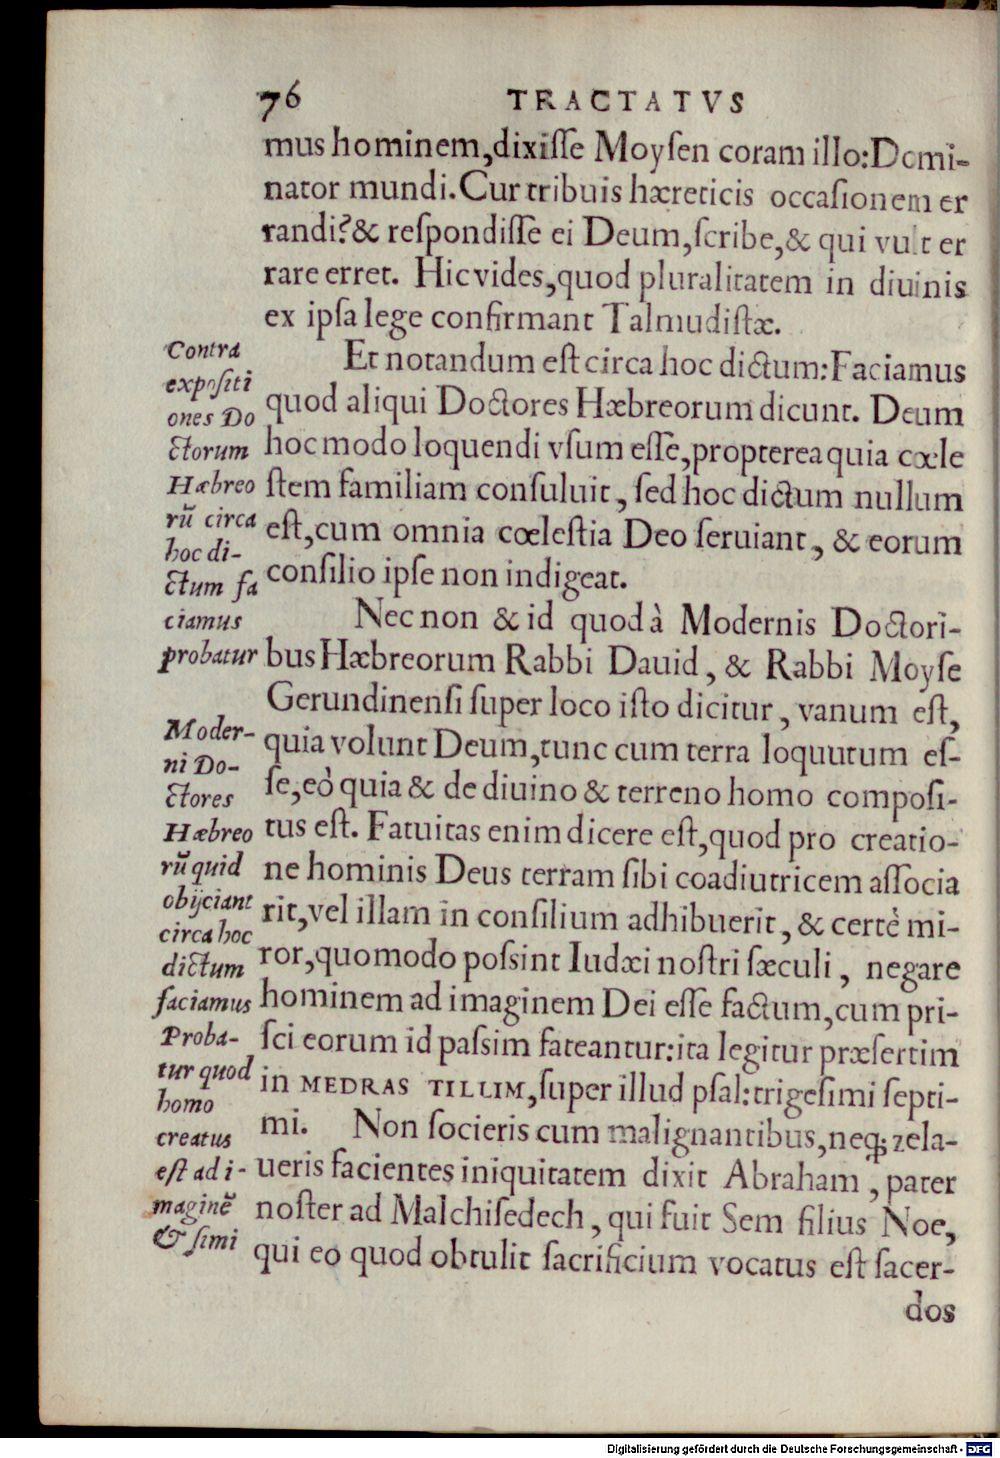 76 TRACTATVS
mus hominem,dixiſſe Moyſen coram illo:Domi-
nator mundi.Cur tribuis hæreticis occaſionem er
randi?& reſpondiſſe ei Deum,ſcribe,& qui vult er
rare erret. Hic vides,quod pluralitatem in diuinis
ex ipſa lege confirmant Talmudiſtæ.
Et notandum eſt circa hoc dictum:Faciamus
quod aliqui Doctores Hæbreorum dicunt. Deum
hoc modo loquendi vſum eſſe,propterea quia cœle
ſtem familiam conſuluit, ſed hoc dictum nullum
eſt,cum omnia cœleſtia Deo ſeruiant, & eorum
conſilio ipſe non indigeat.
Nec non & id quod à Modernis Doctori-
bus Hæbreorum Rabbi Dauid, & Rabbi Moyſe
Gerundinenſi ſuper loco iſto dicitur, vanum eſt,
quia volunt Deum,tunc cum terra loquutum eſ-
ſe,eò quia & de diuino & terreno homo compoſi-
tus eſt. Fatuitas enim dicere eſt,quod pro creatio-
ne hominis Deus terram ſibi coadiutricem aſſocia
rit,vel illam in conſilium adhibuerit, & certè mi-
ror,quomodo poſsint Iudæi noſtri ſæculi, negare
hominem ad imaginem Dei eſſe factum,cum pri-
ſci eorum id paſsim fateantur:ita legitur præſertim
in MEDRAS TILLIM,ſuper illud pſal:trigeſimi ſepti-
mi. Non ſocieris cum malignantibus,neq; zela-
ueris facientes iniquitatem dixit Abraham, pater
noſter ad Malchiſedech, qui fuit Sem filius Noe,
qui eo quod obtulit ſacrificium vocatus eſt ſacer-
dos
Contra
expoſiti
ones Do
ctorum
Hæbreo
rũ circa
hoc di-
ctum fa
ciamus
probatur
Moder-
ni Do-
ctores
Hæbreo
rũ quid
obijciant
circa hoc
dictum
faciamus
Proba-
tur quod
homo
creatus
eſt ad i-
maginẽ
& ſimi
Digitalisierung gefördert durch die Deutsche Forschungsgemeinschaft - DFG